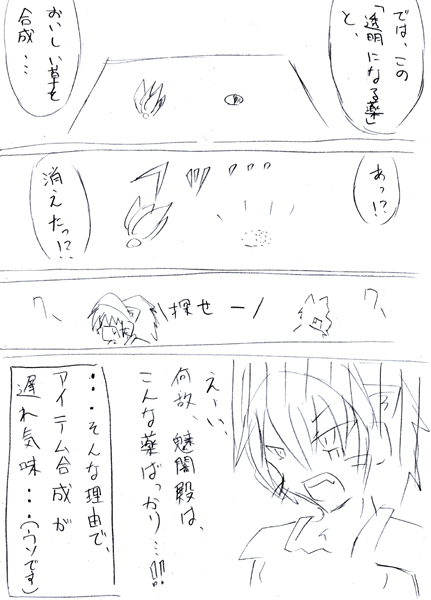 では、この
「透明になる薬」
と、
おいしい草を
合成・・・
あっ!?
フッ・・・
消えたっ!?
探せー!
え〜い、
何故、魅闇殿は、
こんな薬ばっかり…!!!
・・・そんな理由で、
アイテム合成が
遅れ気味・・・(ウソです)